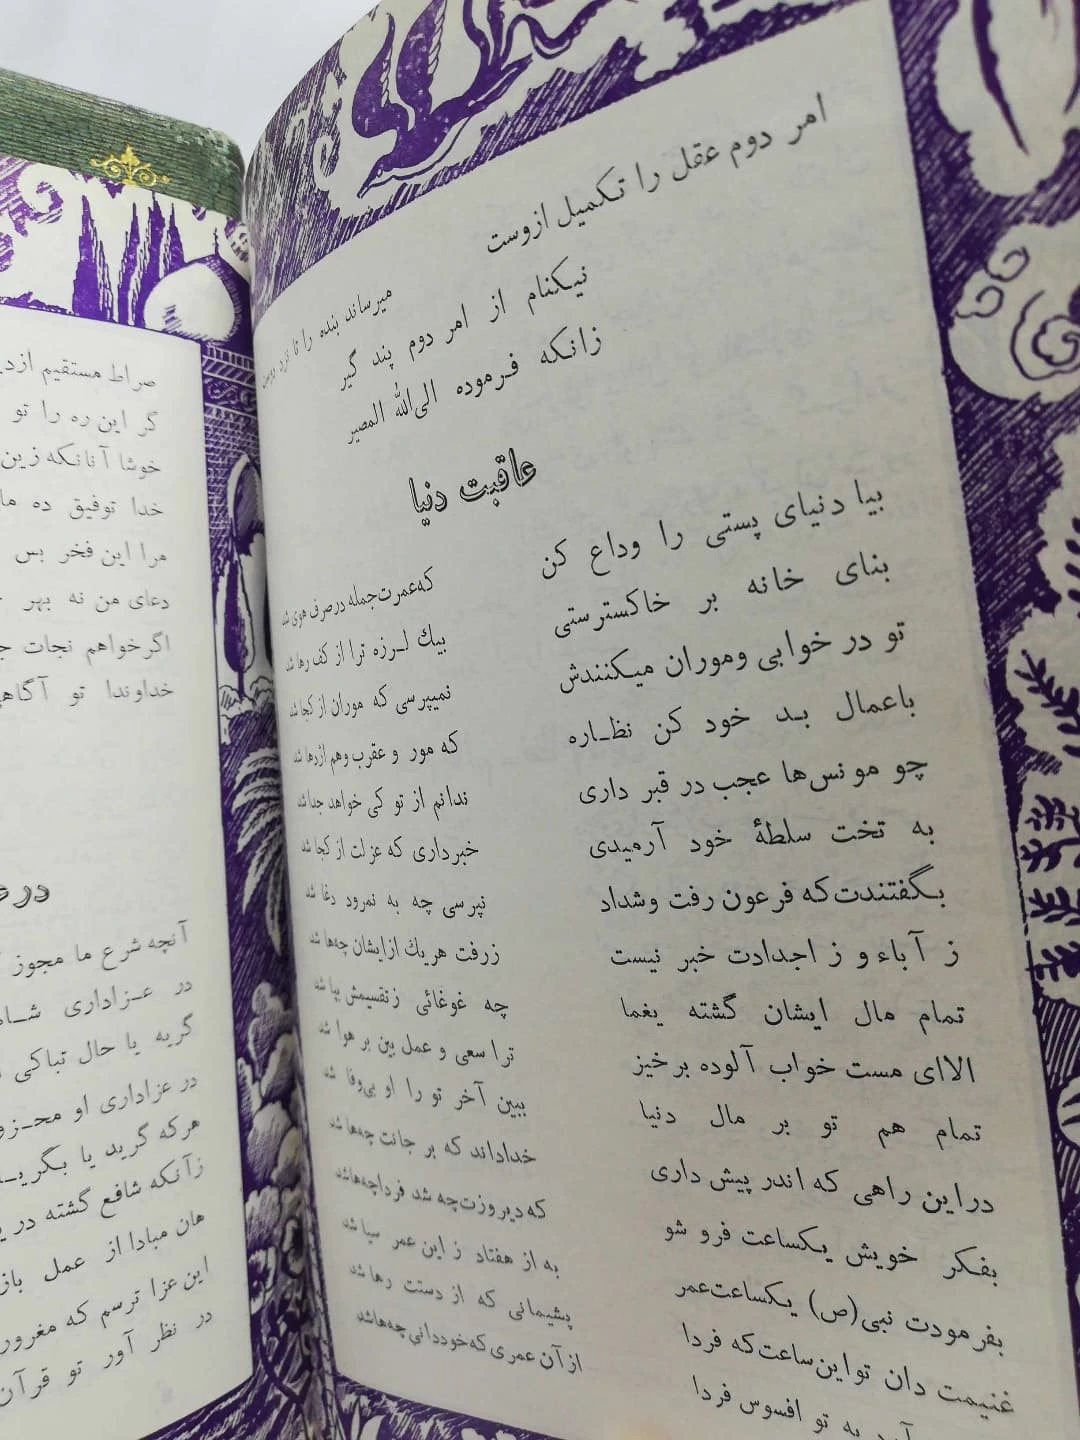 امر دوم عقل را تکمیل ازوست
میرساند بنده را تا نزد
نیکنام از امر دوم پند گیر
زانکه فرموده الی‌الله المصیر
عاقبت دنیا
بیا دنیای پستی را وداع کن
که عمرت جمله در صرف هوی شد
بنای خانه بر خاکستر ستی
بیك لرزه ترا از کف رها شد
تو در خوابی و موران میکنندش
نمیپرسی که موران از کجا شد
باعمال بد خود کن نظاره
که مور و عقرب و هم اژدها شد
چو مونس‌ها عجب در قبر داری
ندانم از تو کی خواهد جدا شد
به تخت سلطهٔ خود آرمیدی
خبر داری که عزلت از کجا شد
بگفتندت که فرعون رفت و شداد
نپرسی چه به نمرود دغا شد
ز آباء و ز اجدادت خبر نیست
ز رفت هریك ازایشان چه‌ها شد
تمام مال ایشان گشته یغما
چه غوغائی ز تقسیمش بپا شد
الا ای مست خواب آلوده برخیز
ترا سعی و عمل بین بر هوا شد
تمام هم تو بر مال دنیا
ببین آخر تو را او بی‌وفا شد
دراین راهی که اندر پیش داری
خداداند که بر جانت چه‌ها شد
بفکر خویش یکساعت فرو شو
که دیروزت چه شد فردا چه‌ها شد
بفرمودت نبی(ص) یکساعت عمر
به از هفتاد ز این عمر سیا شد
غنیمت دان تو این ساعت که فردا
پشیمانی که از دستت رها شد
به تو افسوس فردا
از آن عمری که خود دانی چه‌ها شد
صراط مستقیم
گر این ره را تو
خوشا آنانکه زین
خدا توفیق ده
مرا این فخر بس
دعای من نه بهر
اگر خواهم نجات
خداوندا تو
آنچه شرع ما مجوز
در عزاداری
گریه یا حال تباکی
در عزاداری او
هرکه گرید یا
زآنکه شافع گشته در
هان مبادا از عمل
این عزا ترسم که
در نظر آور تو قرآن